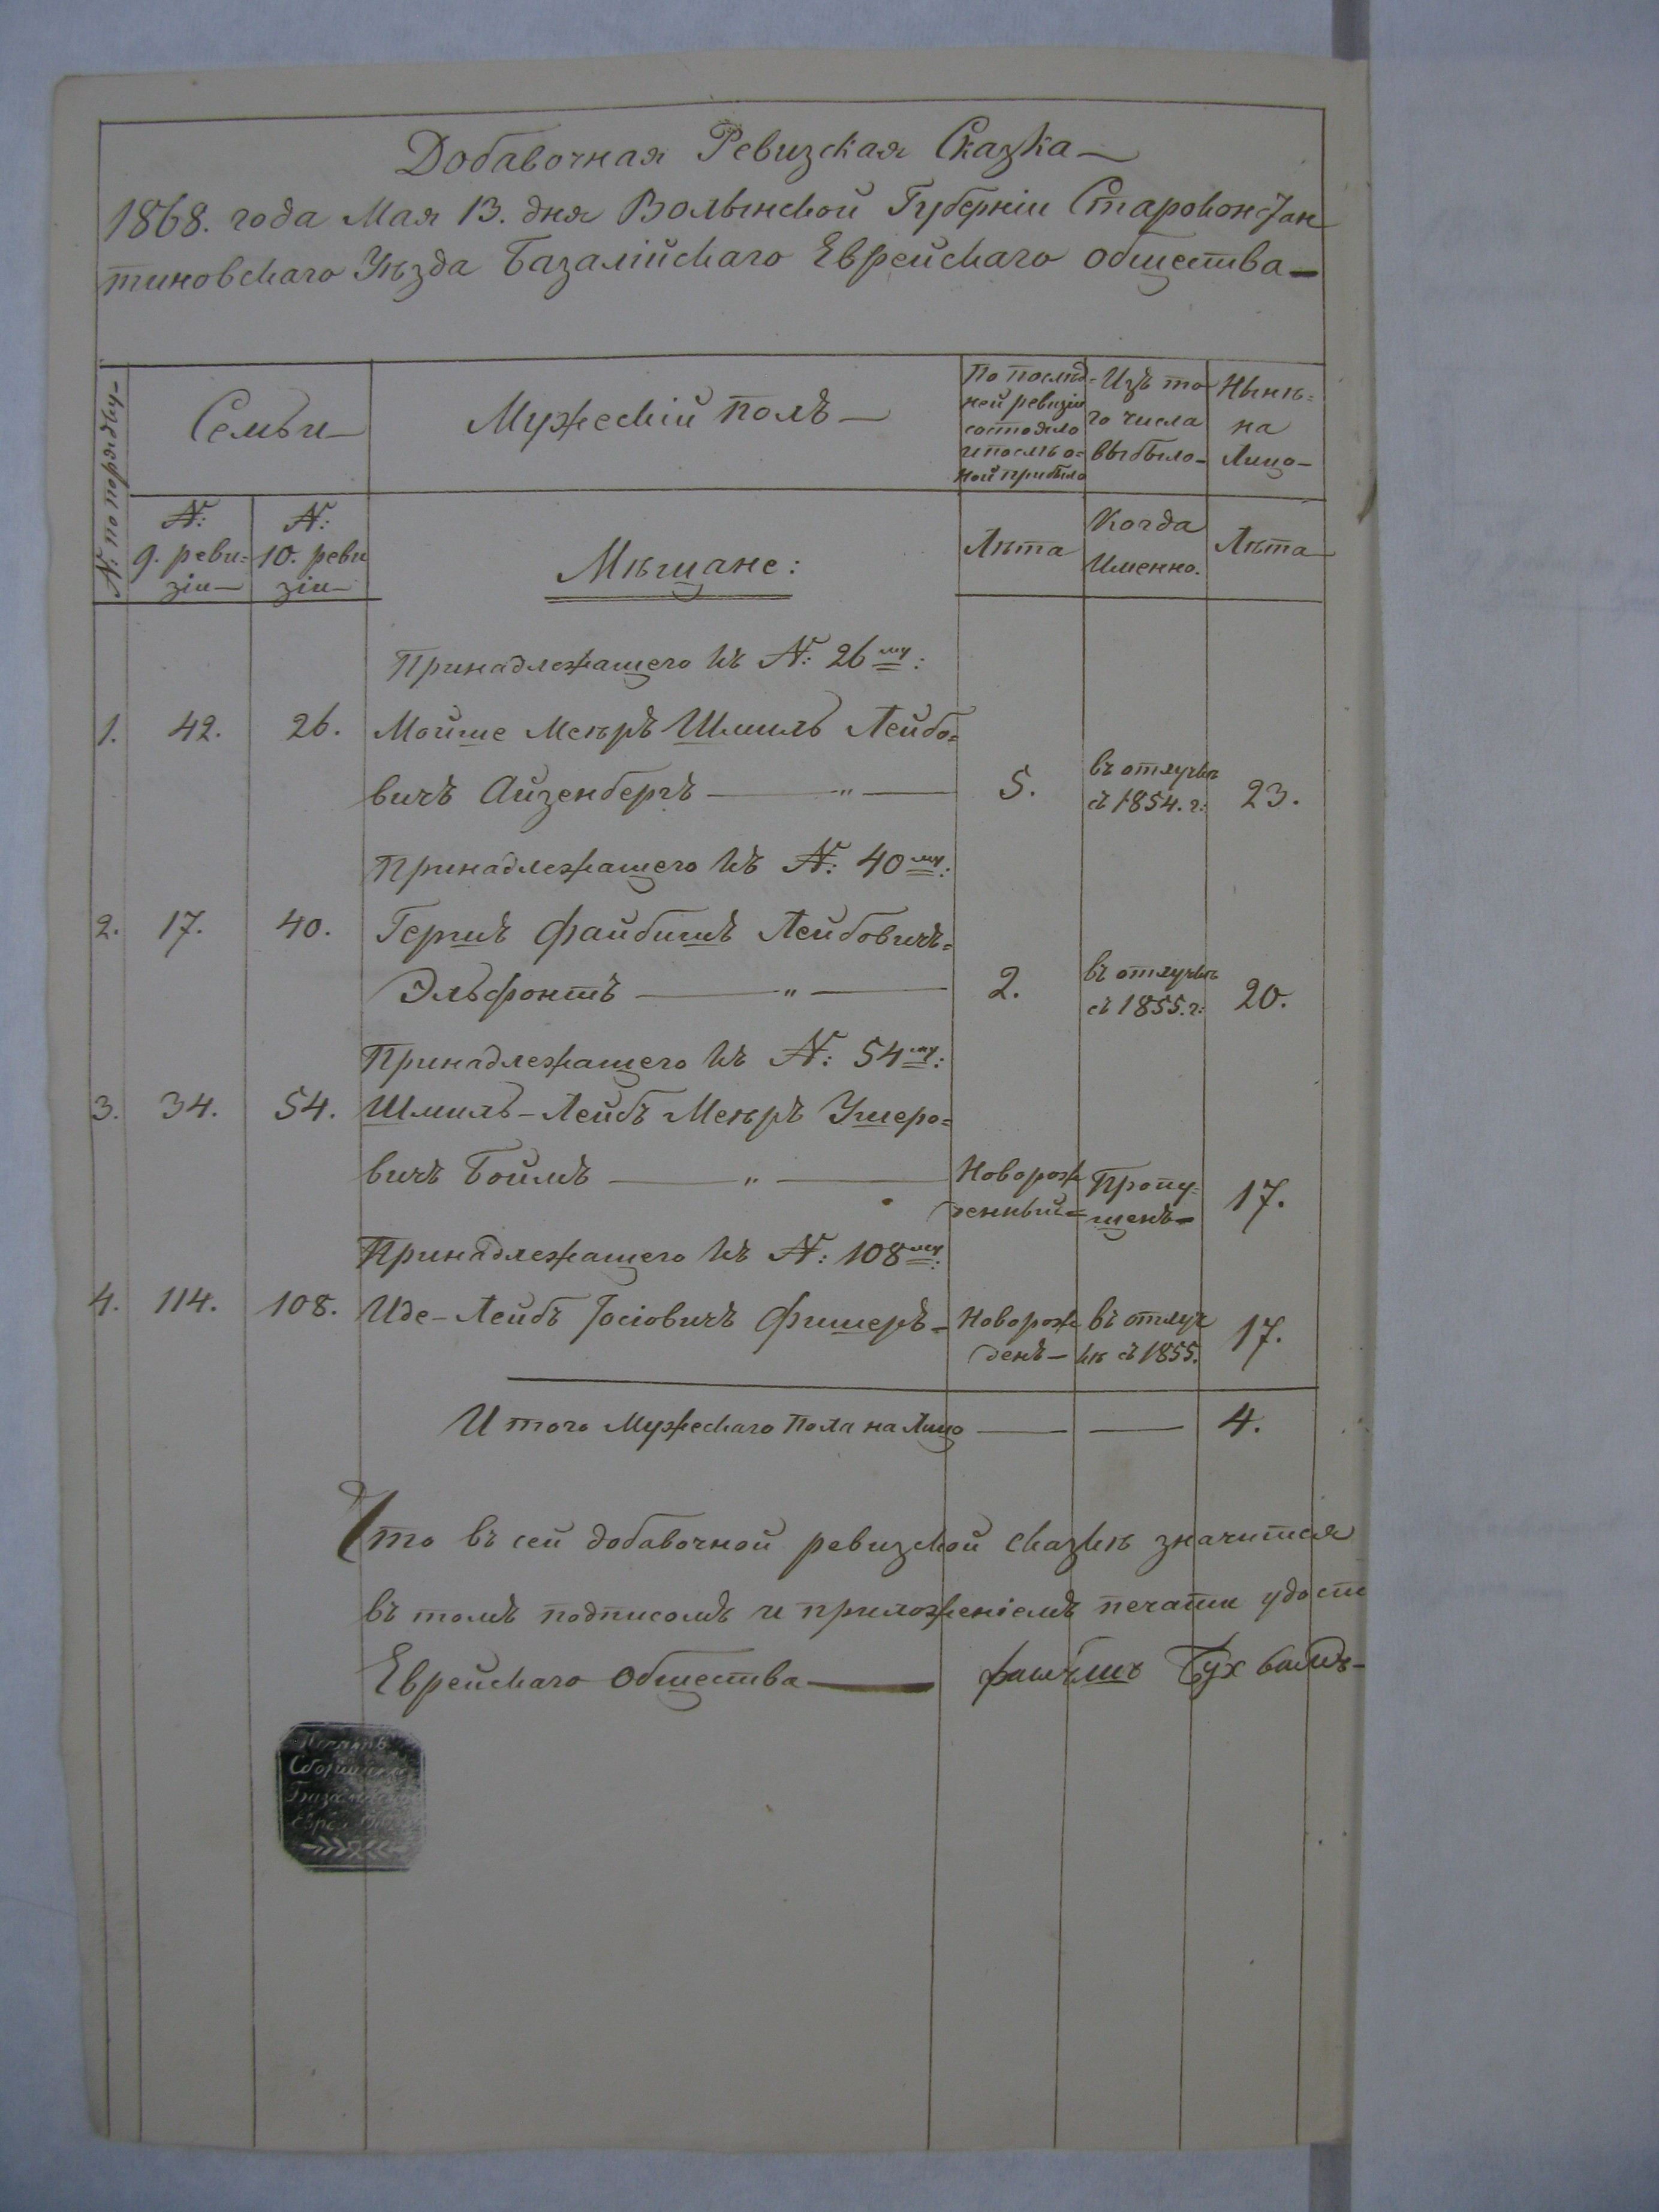 Добавочная Ревизская Сказка—
1868. года Мая 13. дня Волынской Губерніи Старокон­стан
тиновскаго Уѣзда Базалійскаго Еврейскаго общества—
№: по порядку—
Семьи—
Мужескій полъ—
По послѣд=
ней ревизіи
состояло
и послѣ о=
ной прибыло
Изъ то
го числа
выбыло—
Нынѣ=
на
Лицо—
№:
9. реви=
зіи—
№:
10. реви
зіи—
Мѣщане:
Лѣта
Когда
Именно.
Лѣта—
Принадлежащего къ №: 26му:
1. 42. 26. Мойше Меѣръ Шмиль Лейбо=
вичъ Айзенбергъ — " — 5. въ отлучкѣ
съ 1854. г: 23.
Принадлежащего къ №: 40му:
2. 17. 40. Гершъ Файбишъ Лейбовичъ=
Эльфонтъ — " — 2. въ отлучкѣ
съ 1855. г: 20.
Принадлежащего къ №: 54му:
3. 34. 54. Шмиль-Лейбъ Меѣръ Ушеро=
вичъ Боймъ — " — Новорож
денный= Пропу=
щенъ— 17.
Принадлежащего къ №: 108му:
4. 114. 108. Иде-Лейбъ Іосіовичъ Фишеръ= Новорож
денъ— въ отлуч
кѣ съ 1855. 17.
Итого Мужескаго Пола на Лицо — — 4.
Что въ сей добавочной ревизской сказкѣ значится
въ томъ подписомъ и приложеніемъ печати удосте
Еврейскаго Общества—
Печать
Сборщика